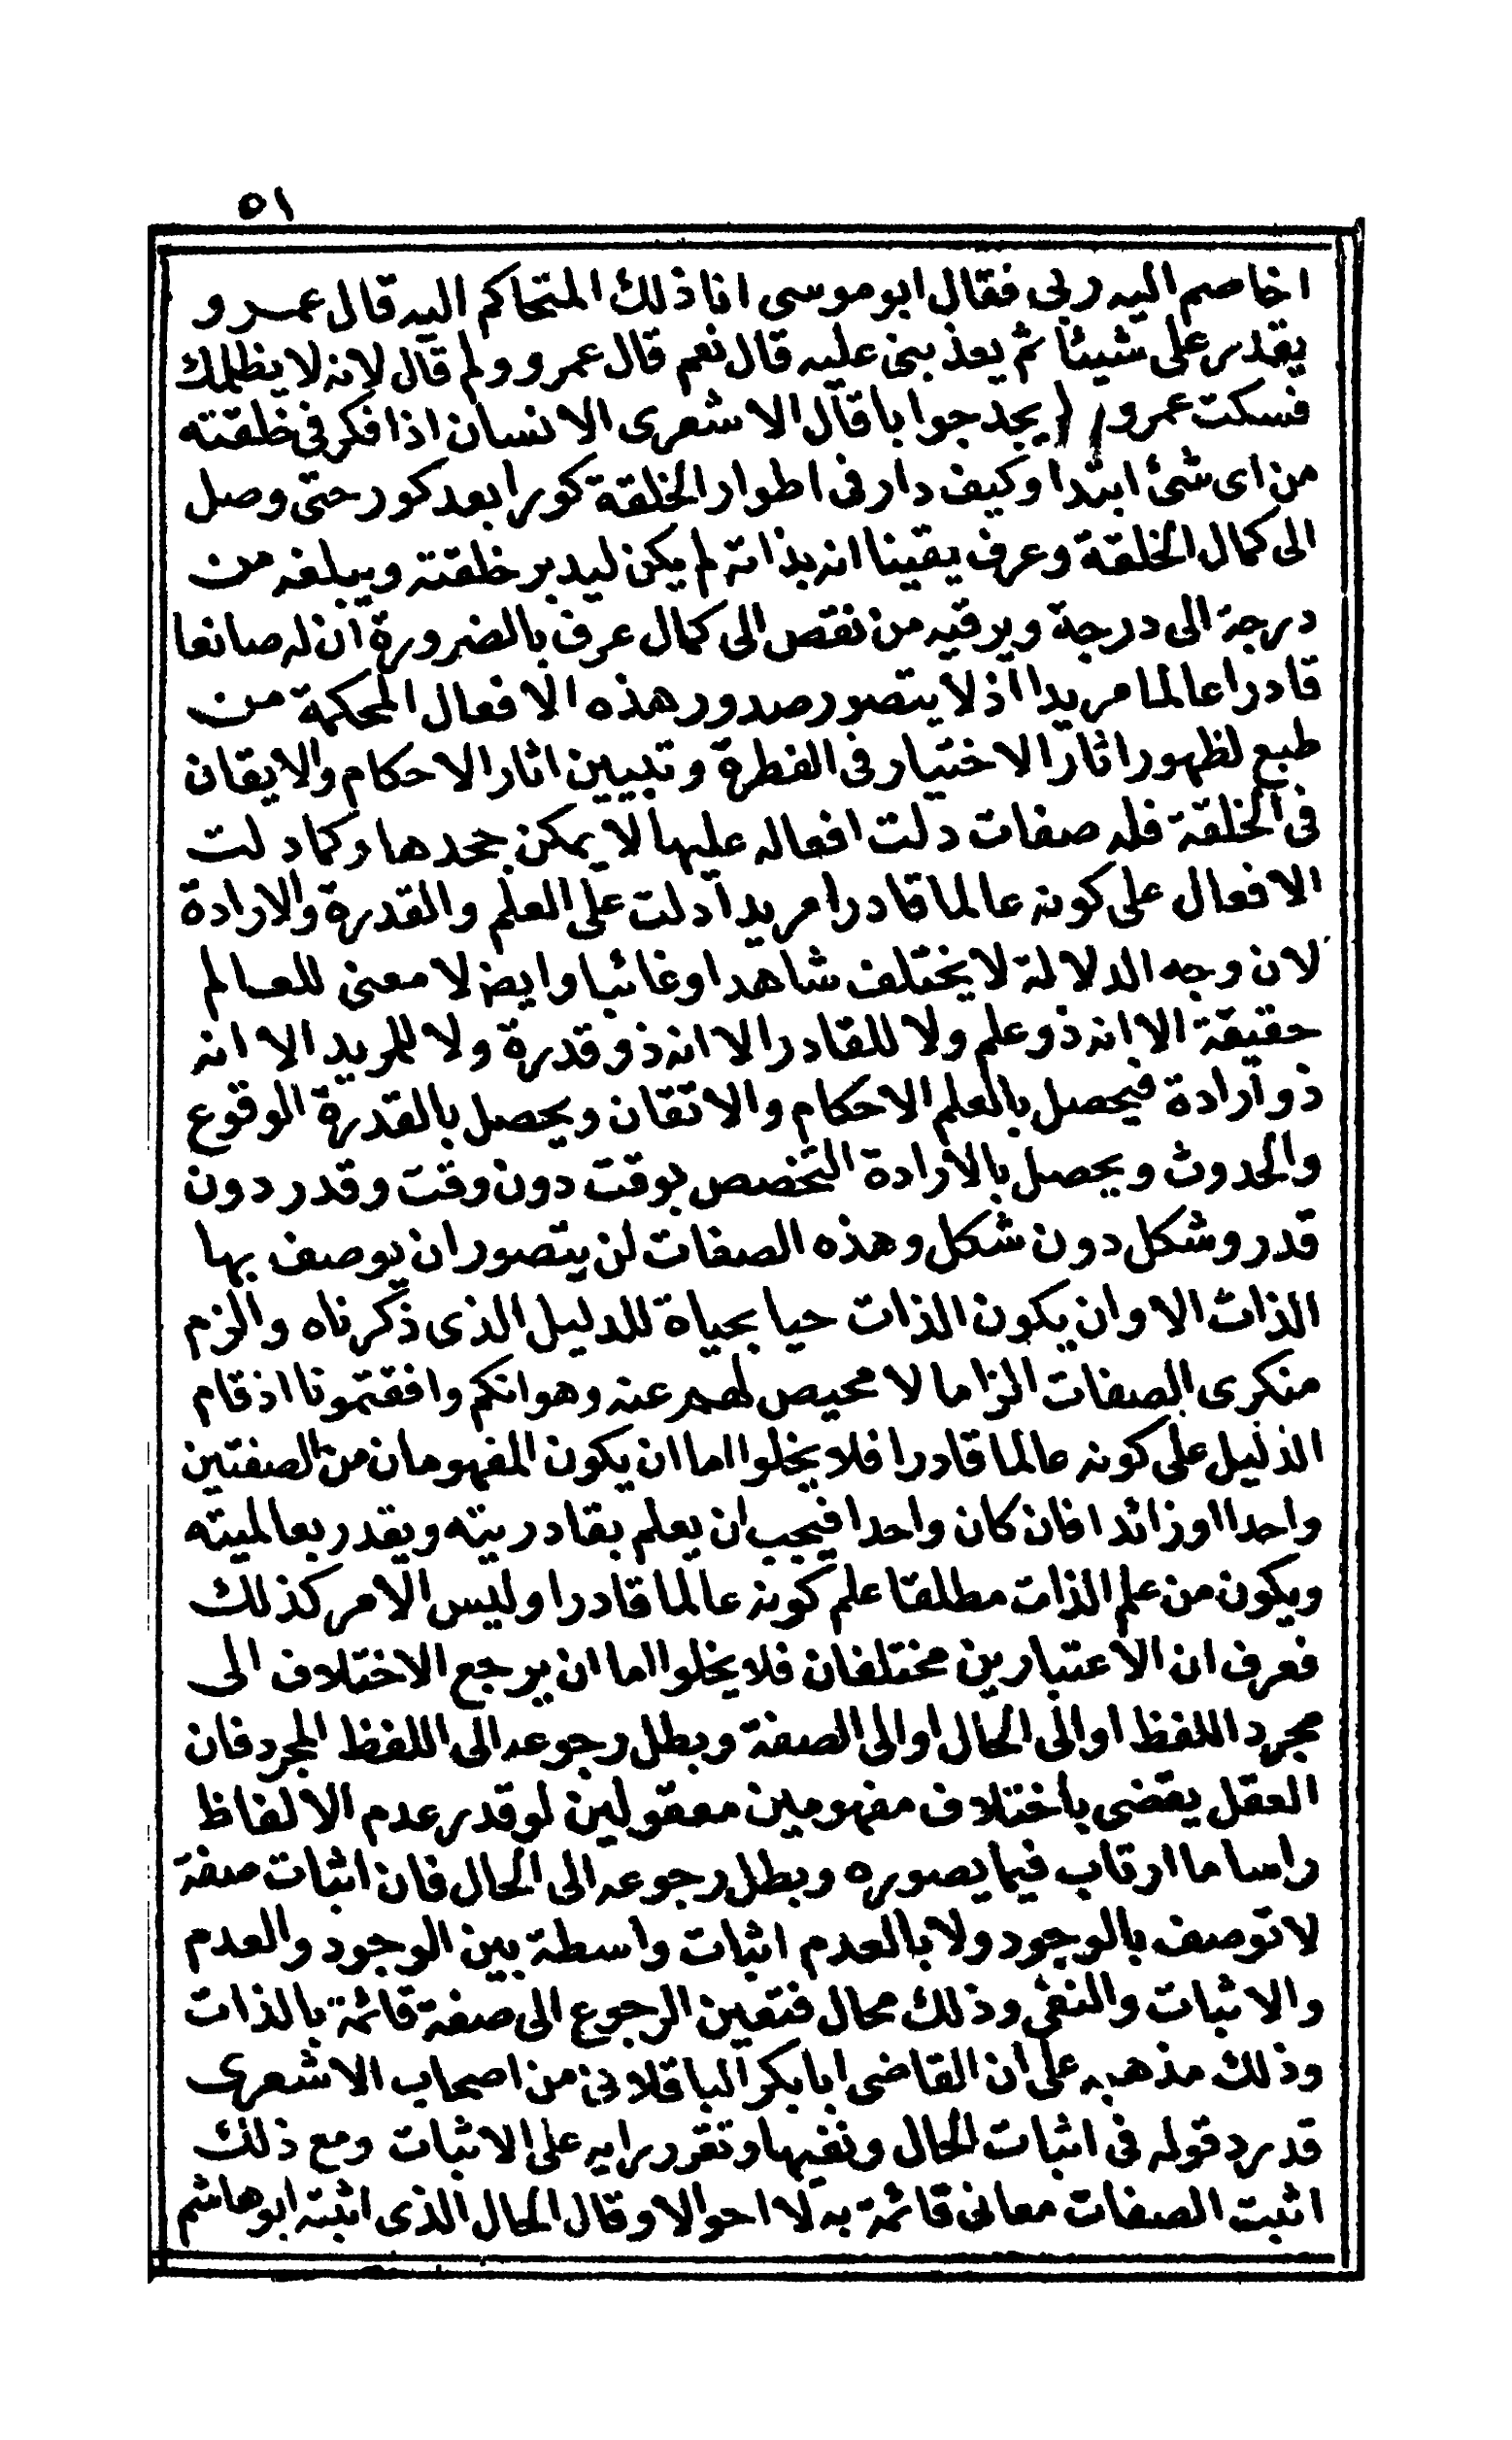 ٥١
اخاصم اليه ربى فقال ابو موسى انا ذلك المتحاكم اليه قال عمرو
يقدر على شيئا ثم يعذبنى عليه قال نعم قال عمرو ولم قال لانه لا يظلمك
فسكت عمرو ولم يجد جوابا قال الاشعرى الانسان اذا فكر فى خلقته
من اى شئ ابتدا وكيف دار فى اطوار الخلقة كورا بعد كور حتى وصل
الى كمال الخلقة وعرف يقينا انه بذاته لم يكن ليدبر خلقته ويبلغه من
درجة الى درجة ويرقيه من نقص الى كمال عرف بالضرورة ان له صانعا
قادرا عالما مريدا اذ لا يتصور صدور هذه الافعال المحكمة من
طبع لظهور اثار الاختيار فى الفطرة وتبيين اثار الاحكام والايقان
فى الخلقة فله صفات دلت افعاله عليها لا يمكن جحدها وكما دلت
الافعال على كونه عالما قادرا مريدا دلت على العلم والقدرة والارادة
لان وجه الدلالة لا يختلف شاهدا وغائبا وايضا لا معنى للعالم
حقيقة الا انه ذو علم ولا للقادر الا انه ذو قدرة ولا للمريد الا انه
ذو ارادة فيحصل بالعلم الاحكام والاتقان ويحصل بالقدرة الوقوع
والحدوث ويحصل بالارادة التخصص بوقت دون وقت وقدر دون
قدر وشكل دون شكل وهذه الصفات لن يتصور ان يوصف بها
الذات الا وان يكون الذات حيا بحياة للدليل الذى ذكرناه والزم
منكرى الصفات الزاما لا محيص لهم عنه وهو انكم وافقتمونا اذ قام
الدليل على كونه عالما قادرا فلا يخلوا اما ان يكون المفهومان من الصفتين
واحدا او زائدا فان كان واحدا فيجب ان يعلم بقادريته ويقدر بعالميته
ويكون من علم الذات مطلقا علم كونه عالما قادرا وليس الامر كذلك
فعرف ان الاعتبارين مختلفان فلا يخلوا اما ان يرجع الاختلاف الى
مجرد اللفظ او الى الحال او الى الصفة وبطل رجوعه الى اللفظ المجرد فان
العقل يقضى باختلاف مفهومين معقولين لو قدر عدم الالفاظ
راسا ما ارتاب فيما يصوره وبطل رجوعه الى الحال فان اثبات صفة
لا توصف بالوجود ولا بالعدم اثبات واسطة بين الوجود والعدم
والاثبات والنفى وذلك محال فتعين الرجوع الى صفة قائمة بالذات
وذلك مذهبه على ان القاضى ابا بكر الباقلانى من اصحاب الاشعرى
قد رد قوله فى اثبات الحال ونفيها وتقرر رايه على الاثبات ومع ذلك
اثبت الصفات معانى قائمة به لا احوالا وقال الحال الذى اثبته ابو هاشم